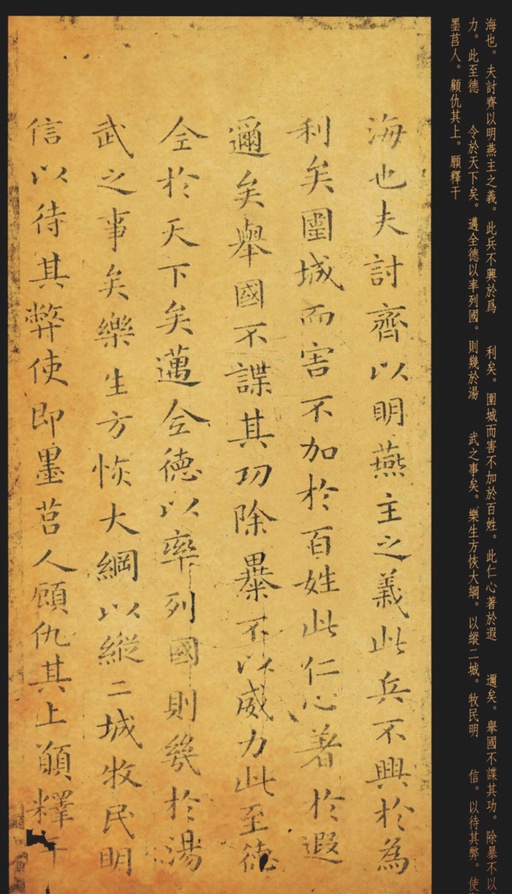 海也。夫討齊以明燕主之義。此兵不興於爲 利矣。圍城而害不加於百姓。此仁心著於遐 邇矣。舉國不謀其功。除暴不以
力。此至德 令於天下矣。邁全德以率列國。則幾於湯 武之事矣。樂生方恢大綱。以縱二城。牧民明 信。以待其弊。使
墨莒人。顧仇其上。願釋干
海也夫討齊以明燕主之義此兵不興於為
利矣圍城而害不加於百姓此仁心著於遐
邇矣舉國不謀其功除暴不以威力此至德
全於天下矣邁全德以率列國則幾於湯
武之事矣樂生方恢大綱以縱二城牧民明
信以待其弊使即墨莒人顧仇其上願釋干